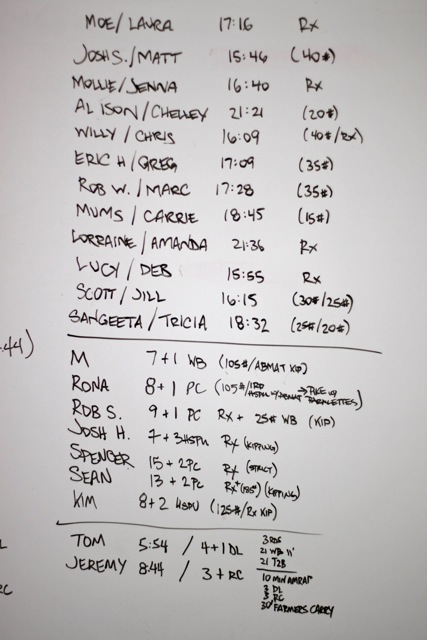 MOE/LAURA 17:16 RX
JOSH S./MATT 15:46 (40#)
MOLLIE/JENNA 16:40 RX
ALISON/CHELLEY 21:21 (20#)
WILLY/CHRIS 16:09 (40#/RX)
ERIC H/GREG 17:09 (35#)
ROB W./MARC 17:28 (35#)
MUMS/CARRIE 18:45 (15#)
LORRAINE/AMANDA 21:36 RX
LUCY/DEB 15:55 RX
SCOTT/JILL 16:15 (30#/25#)
SANGEETA/TRICIA 18:32 (25#/20#)
.44)
M 7+1 WB (105#/ABMAT KIP)
RONA 8+1 PC (105#/1RD HSPU W/ABMAT → PIKE W/ PARALETTES)
ROB S. 9+1 PC RX + 25# WB (KIP)
JOSH H. 7+3 HSPU RX (KIPPING)
SPENCER 15+2PC RX (STRICT)
SEAN 13+2PC RX+ (KIPPING)
KIM 8+2 HSPU (125#/RX KIP)
TOM 5:54 / 4+1 DL
JEREMY 8:44 / 3+RC
3 RDS
21 WB 11'
21 T2B
10 MIN AMRAP
3 DL
3 RC
30' FARMERS CARRY
L
RC